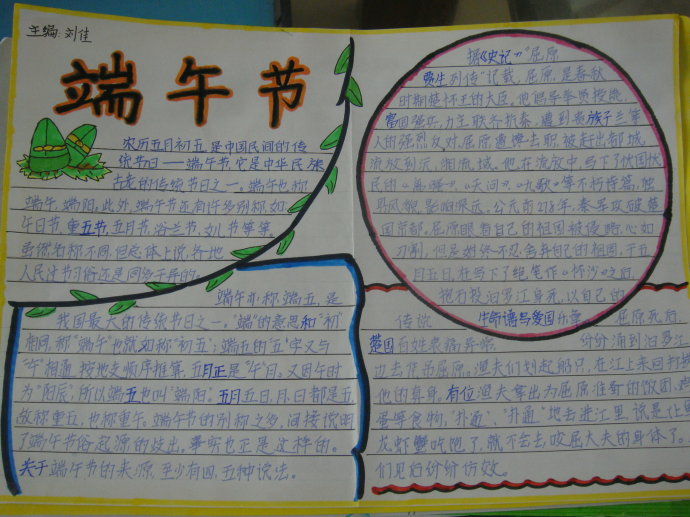 主编:刘佳
端午节
农历五月初五,是中国民间的传
统节日——端午节,它是中华民族
古老的传统节日之一。端午也称
端午,端阳。此外,端午节还有许多别称,如:
午日节,重五节,五月节,浴兰节,女儿节等等。
虽然名称不同,但总体上说,各地
人民过节习俗还是同多于异的。
端午亦称端五,是
我国最大的传统节日之一,"端"的意思和"初"
相同,称"端午"也就如称"初五";端五的"五"字又与
"午"相通,按地支顺序推算,五月正是"午"月。又因午时
为"阳辰",所以端五也叫"端阳。五月五日,月、日都是五,
故称重五,也称重午。端午节的别称之多,间接说明
了端午节俗起源的歧出。事实也正是这样的。
关于端午节的来源,至少有四、五种说法。
据《史记》"屈原
贾生列传"记载,屈原,是春秋
时期楚怀王的大臣。他倡导举贤授能,
富国强兵,力主联齐抗秦,遭到贵族子兰等
人的强烈反对,屈原遭谗去职,被赶出都城,
流放到沅、湘流域。他在流放中,写下了忧国忧
民的《离骚》、《天问》、《九歌》等不朽诗篇,独
具风貌,影响深远。公元前278年,秦军攻破楚
国京都。屈原眼看自己的祖国被侵略,心如
刀割,但是始终不忍舍弃自己的祖国,于五
月五日,在写下了绝笔作《怀沙》之后,
抱石投汨罗江身死,以自己的
传说 生命谱写爱国乐章 屈原死后,
楚国百姓哀痛异常 纷纷涌到汨罗江
边去凭吊屈原。渔夫们划起船只,在江上来回打捞
他的真身。有位渔夫拿出为屈原准备的饭团、鸡
蛋等食物,"扑通、"扑通"地丢进江里,说是让鱼
龙虾蟹吃饱了,就不会去咬屈大夫的身体了。
们见后纷纷仿效。